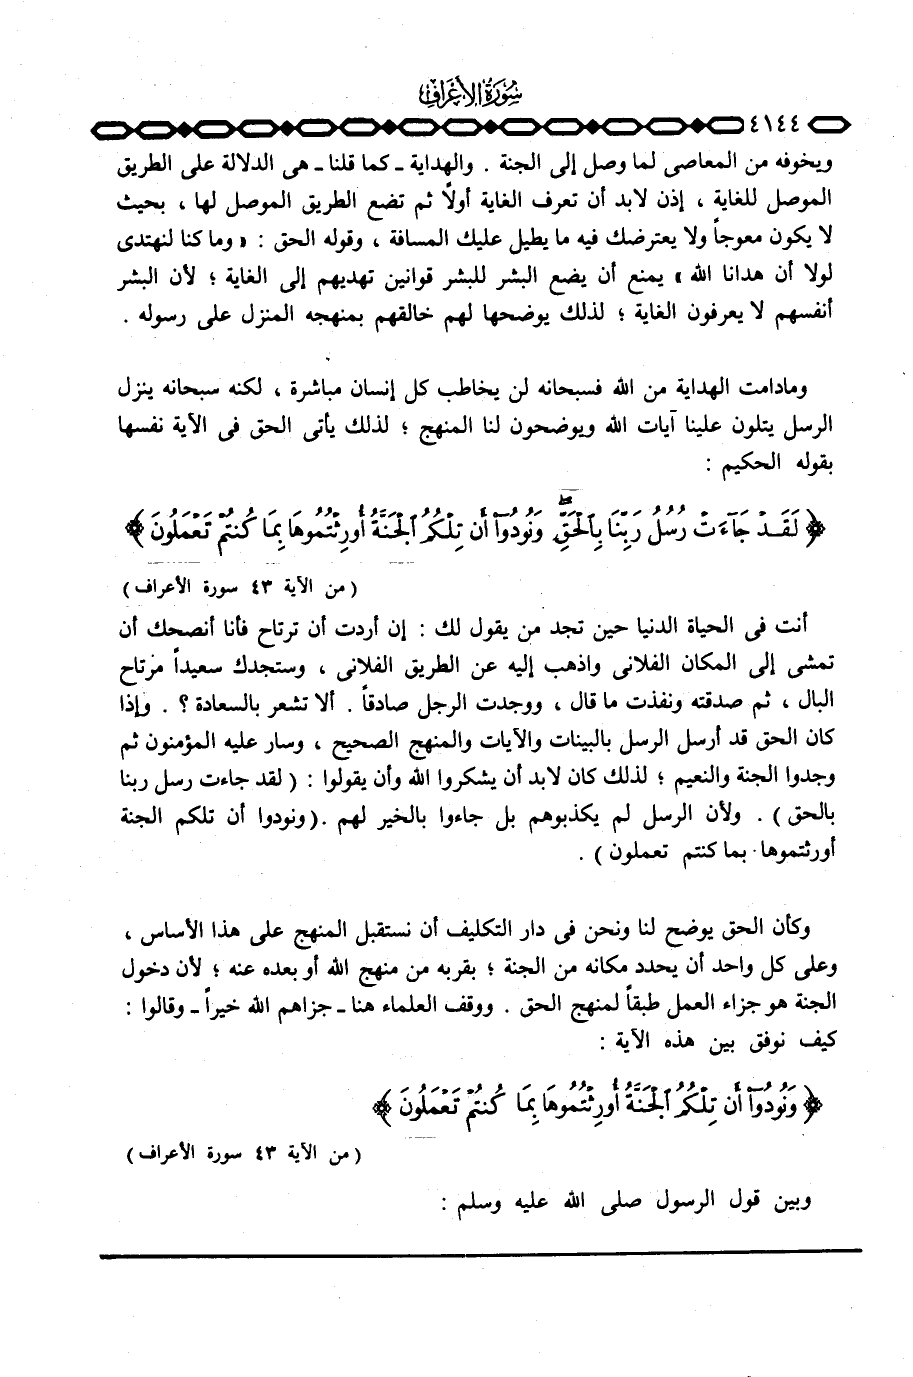 سورة الأعراف
٤١٤٤
ويخوفه من المعاصى لما وصل إلى الجنة . والهداية ـ كما قلنا ـ هى الدلالة على الطريق
الموصل للغاية ، إذن لابد أن تعرف الغاية أولاً ثم تضع الطريق الموصل لها ، بحيث
لا يكون معوجاً ولا يعترضك فيه ما يطيل عليك المسافة ، وقوله الحق : « وما كنا لنهتدى
لولا أن هدانا الله » يمنع أن يضع البشر للبشر قوانين تهديهم إلى الغاية ؛ لأن البشر
أنفسهم لا يعرفون الغاية ؛ لذلك يوضحها لهم خالقهم بمنهجه المنزل على رسوله .
ومادامت الهداية من الله فسبحانه لن يخاطب كل إنسان مباشرة ، لكنه سبحانه ينزل
الرسل يتلون علينا آيات الله ويوضحون لنا المنهج ؛ لذلك يأتى الحق فى الآية نفسها
بقوله الحكيم :
﴿ لَقَدْ جَآءَتْ رُسُلُ رَبِّنَا بِٱلْحَقِّ ۖ وَنُودُوٓا۟ أَن تِلْكُمُ ٱلْجَنَّةُ أُورِثْتُمُوهَا بِمَا كُنتُمْ تَعْمَلُونَ ﴾
( من الآية ٤٣ سورة الأعراف )
أنت فى الحياة الدنيا حين تجد من يقول لك : إن أردت أن ترتاح فأنا أنصحك أن
تمشى إلى المكان الفلانى واذهب إليه عن الطريق الفلانى ، وستجدك سعيداً مرتاح
البال ، ثم صدقته ونفذت ما قال ، ووجدت الرجل صادقاً . ألا تشعر بالسعادة ؟ . وإذا
كان الحق قد أرسل الرسل بالبينات والآيات والمنهج الصحيح ، وسار عليه المؤمنون ثم
وجدوا الجنة والنعيم ؛ لذلك كان لابد أن يشكروا الله وأن يقولوا : ( لقد جاءت رسل ربنا
بالحق ) . ولأن الرسل لم يكذبوهم بل جاءوا بالخير لهم . ( ونودوا أن تلكم الجنة
أورثتموها بما كنتم تعملون ) .
وكأن الحق يوضح لنا ونحن فى دار التكليف أن نستقبل المنهج على هذا الأساس ،
وعلى كل واحد أن يحدد مكانه من الجنة ؛ بقربه من منهج الله أو بعده عنه ؛ لأن دخول
الجنة هو جزاء العمل طبقاً لمنهج الحق . ووقف العلماء هنا ـ جزاهم الله خيراً ـ وقالوا :
كيف نوفق بين هذه الآية :
﴿ وَنُودُوٓا۟ أَن تِلْكُمُ ٱلْجَنَّةُ أُورِثْتُمُوهَا بِمَا كُنتُمْ تَعْمَلُونَ ﴾
( من الآية ٤٣ سورة الأعراف )
وبين قول الرسول صلى الله عليه وسلم :